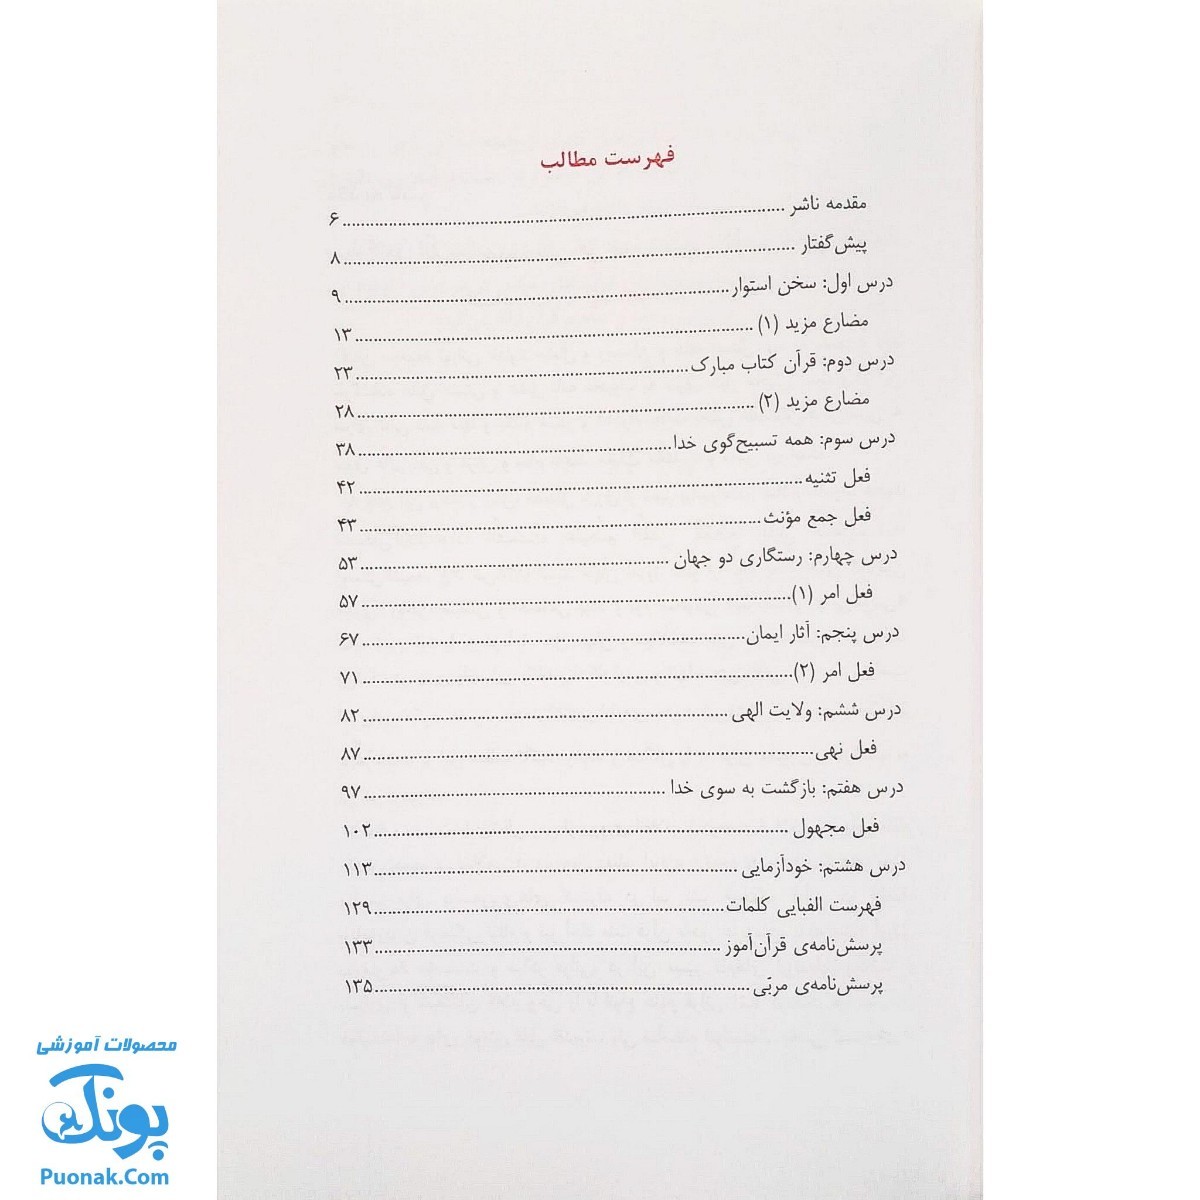 فهرست مطالب
مقدمه ناشر ........ ۶
پیش‌گفتار ........ ۸
درس اول: سخن استوار ........ ۹
مضارع مزید (۱) ........ ۱۳
درس دوم: قرآن کتاب مبارک ........ ۲۳
مضارع مزید (۲) ........ ۲۸
درس سوم: همه تسبیح‌گوی خدا ........ ۳۸
فعل تثنیه ........ ۴۲
فعل جمع مؤنث ........ ۴۳
درس چهارم: رستگاری دو جهان ........ ۵۳
فعل امر (۱) ........ ۵۷
درس پنجم: آثار ایمان ........ ۶۷
فعل امر (۲) ........ ۷۱
درس ششم: ولایت الهی ........ ۸۲
فعل نهی ........ ۸۷
درس هفتم: بازگشت به سوی خدا ........ ۹۷
فعل مجهول ........ ۱۰۲
درس هشتم: خودآزمایی ........ ۱۱۳
فهرست الفبایی کلمات ........ ۱۲۹
پرسش‌نامه‌ی قرآن‌آموز ........ ۱۳۳
پرسش‌نامه‌ی مربّی ........ ۱۳۵
محصولات آموزشی
پونک
Puonak.Com